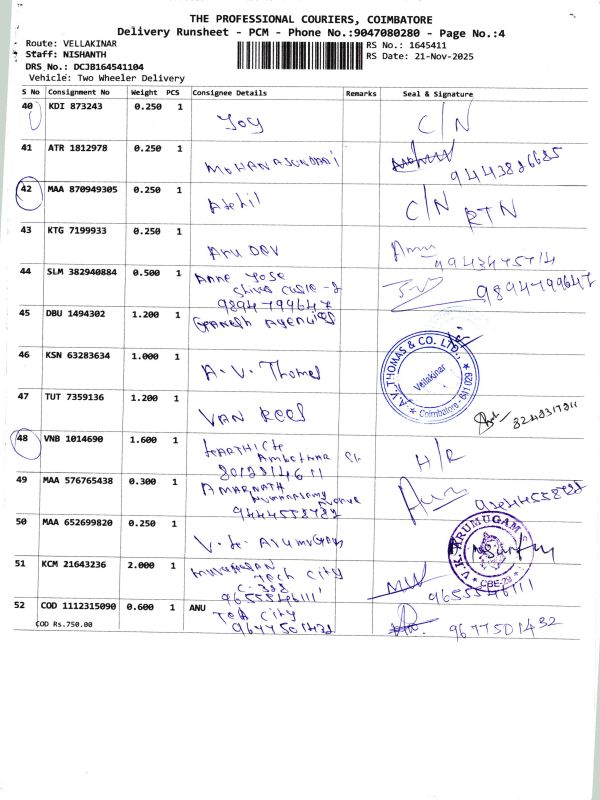 THE PROFESSIONAL COURIERS, COIMBATORE
Delivery Runsheet - PCM - Phone No.:9047080280 - Page No.:4
Route: VELLAKINAR
RS No.: 1645411
Staff: NISHANTH
RS Date: 21-Nov-2025
DRS No.: DCJB164541104
Vehicle: Two Wheeler Delivery
S No Consignment No Weight PCS Consignee Details Remarks Seal & Signature
40 KDI 873243 0.250 1 Joy C/N
41 ATR 1812978 0.250 1
9443886685
42 MAA 870949305 0.250 1 C/N RTN
43 KTG 7199933 0.250 1 Aru Dev
44 SLM 382940884 0.500 1 Anne Jose
9894799647 9894799647
45 DBU 1494302 1.200 1 Ganesh Agencies
46 KSN 63283634 1.000 1 A.V. Thomas
A.V. THOMAS & CO. LTD.,
Vellakinar
Coimbatore - 641 029
47 TUT 7359136 1.200 1 VAN Rees
48 VNB 1014690 1.600 1 H/R
49 MAA 576765438 0.300 1 AMARNATH
Avenue
9444558782
50 MAA 652699820 0.250 1 V.K. Arumugam
V.K. ARUMUGAM
CBE-29
51 KCM 21643236 2.000 1 Murugesan
Tech City
C-388
9655546111 9655546111
52 COD 1112315090 0.600 1 ANU
Tech City
9677501432 9677501432
COD Rs.750.00